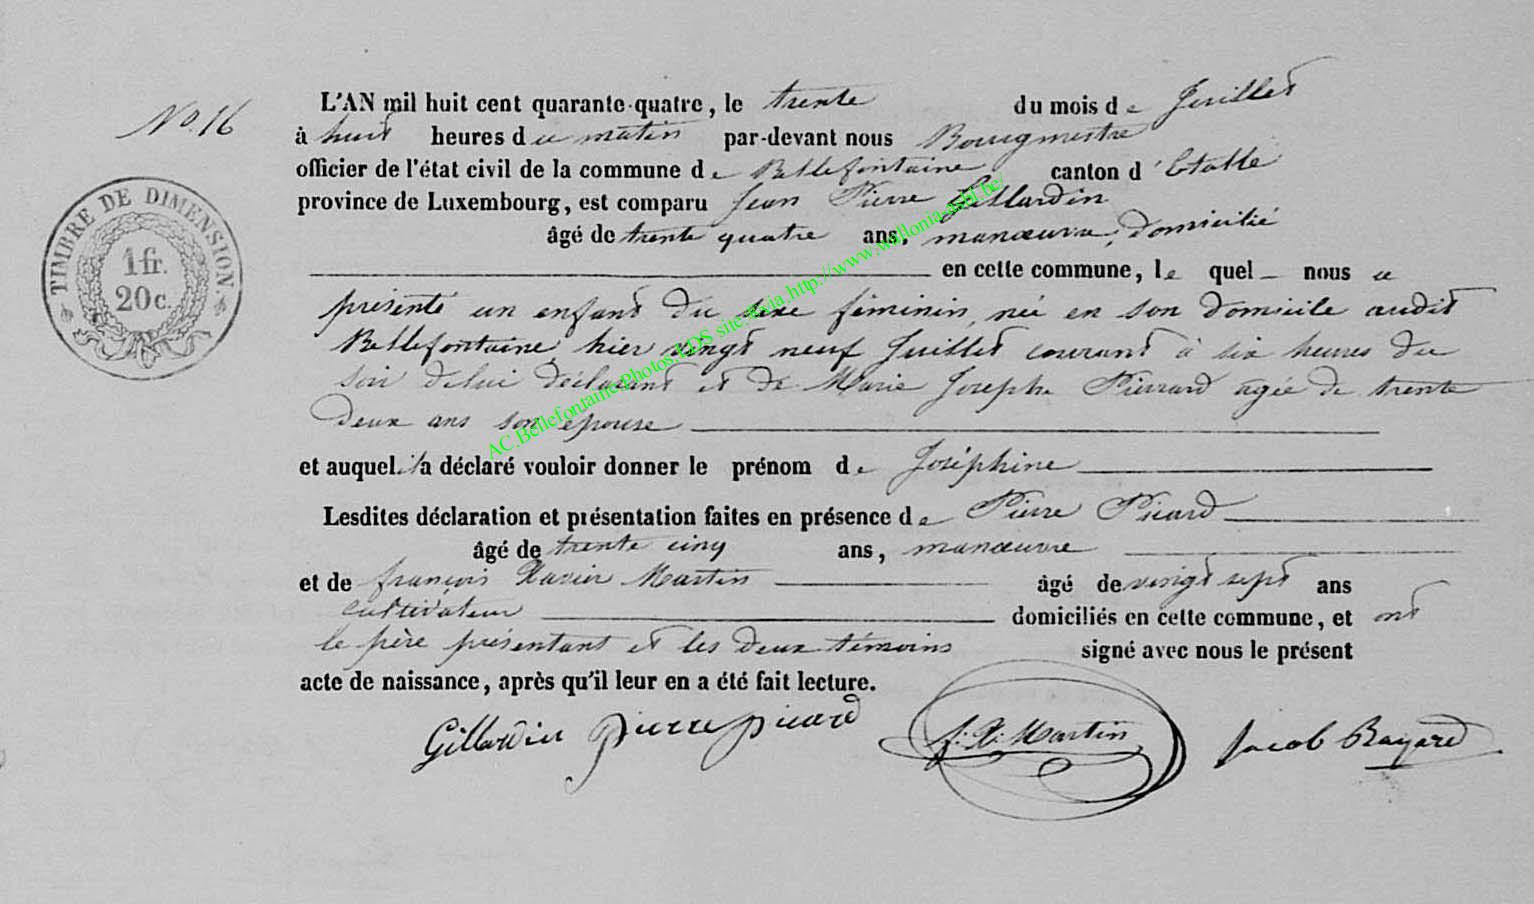 No. 16
TIMBRE DE DIMENSION.
1 fr.
20 c.
L'AN mil huit cent quarante-quatre, le trente du mois de Juillet
à huit heures du matin par-devant nous Bourgmestre
officier de l'état civil de la commune de Bellefontaine canton d'Etalle
province de Luxembourg, est comparu Jean Pierre Gillardin
âgé de trente quatre ans, manœuvre, domicilié
en cette commune, le quel nous a
présenté un enfant du sexe féminin, née en son domicile audit
Bellefontaine, hier vingt neuf Juillet courant à six heures du
soir de lui déclarant et de Marie Josephe Pierrard agée de trente
deux ans son épouse
et auquel il a déclaré vouloir donner le prénom de Joséphine
Lesdites déclaration et présentation faites en présence de Pierre Picard
âgé de trente cinq ans, manœuvre
et de françois Xavier Martin âgé de vingt sept ans
cultivateur domiciliés en cette commune, et ont
le père présentant et les deux témoins signé avec nous le présent
acte de naissance, après qu'il leur en a été fait lecture.
Gillardin pierre picard f: X: Martin Jacob Bayard
AC.Bellefontaine.Photos.EDS site.via.http://www.wallonia-asbl.be/